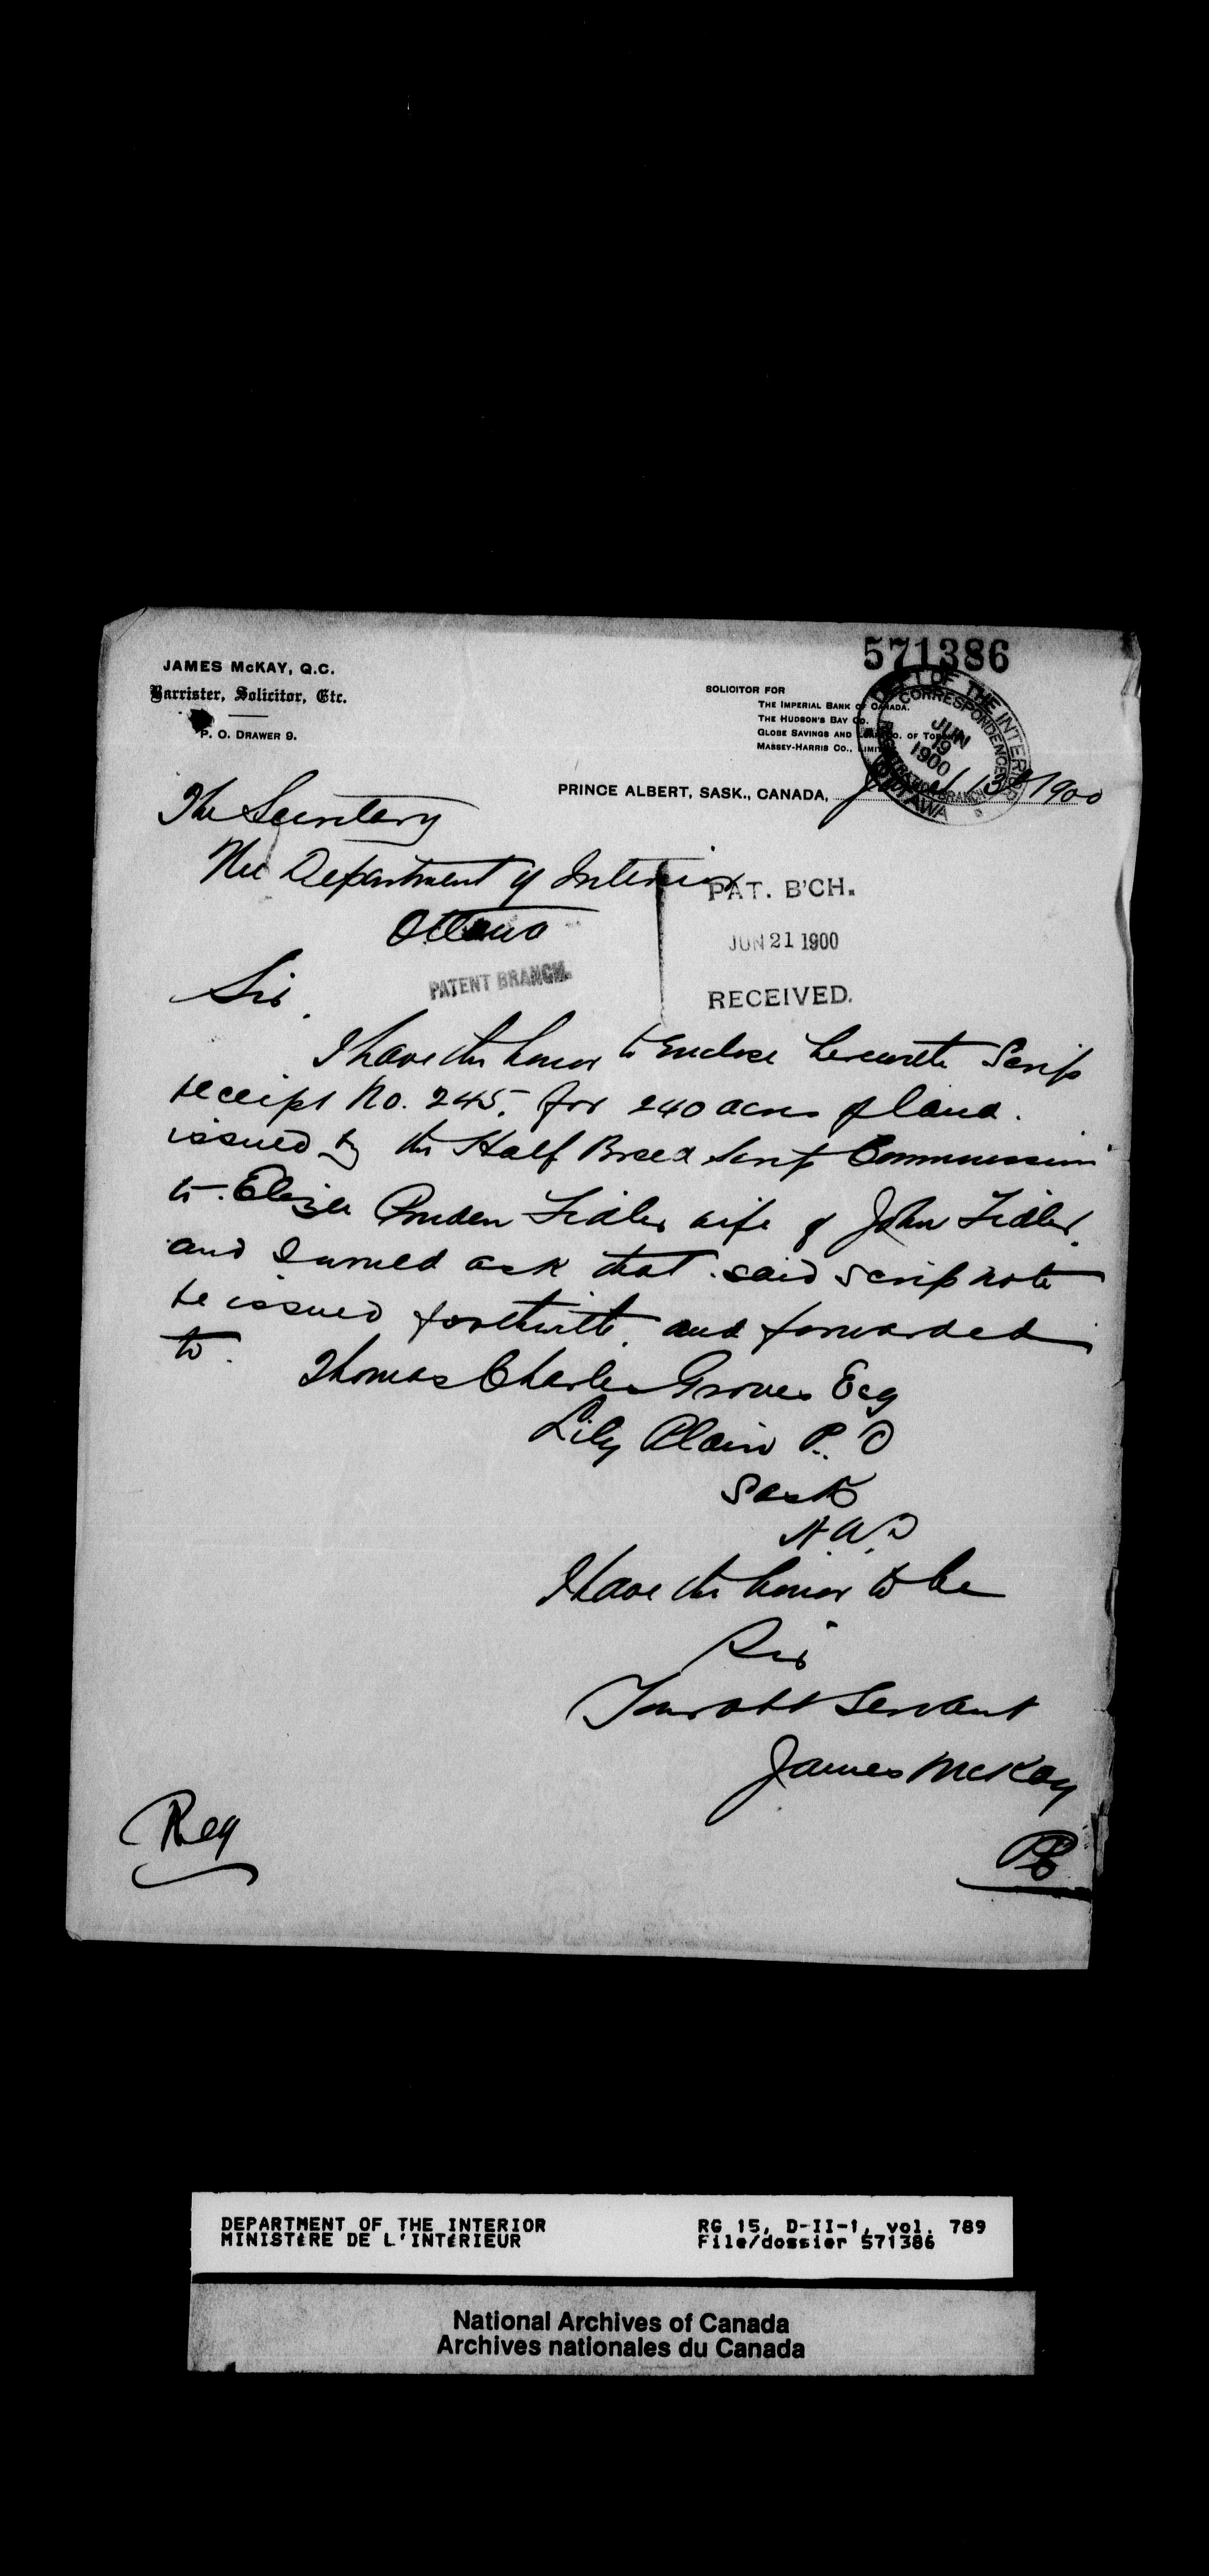 571386
JAMES McKAY, Q.C.
Barrister, Solicitor, Etc.
P. O. DRAWER 9.
SOLICITOR FOR
THE IMPERIAL BANK OF CANADA.
THE HUDSON'S BAY CO.
GLOBE SAVINGS AND LOAN CO. OF TORONTO
MASSEY-HARRIS CO., LIMITED
DEPT OF THE INTERIOR
CORRESPONDENCE
JUN
19
1900
REGISTRATION BRANCH
OTTAWA
PRINCE ALBERT, SASK., CANADA, 13th 1900
The Secretary
The Department of Interior
Ottawa
PAT. B'CH.
JUN 21 1900
RECEIVED.
PATENT BRANCH.
Sir,
I have the honor to enclose herewith Scrip
receipt No. 245. for 240 acres of land.
issued by the Half Breed Scrip Commission
to. Eliza Pruden Fidler wife of John Fidler.
and I would ask that said scrip note
be issued forthwith, and forwarded
to.
Thomas Charles Groves Esq
Lily Plain P. O
Sask
N.W.T
I have the honor to be
Sir
Your obt Servant
James McKay
Reg
DEPARTMENT OF THE INTERIOR
MINISTÈRE DE L'INTÉRIEUR
RG 15, D-II-1, vol. 789
File/dossier 571386
National Archives of Canada
Archives nationales du Canada